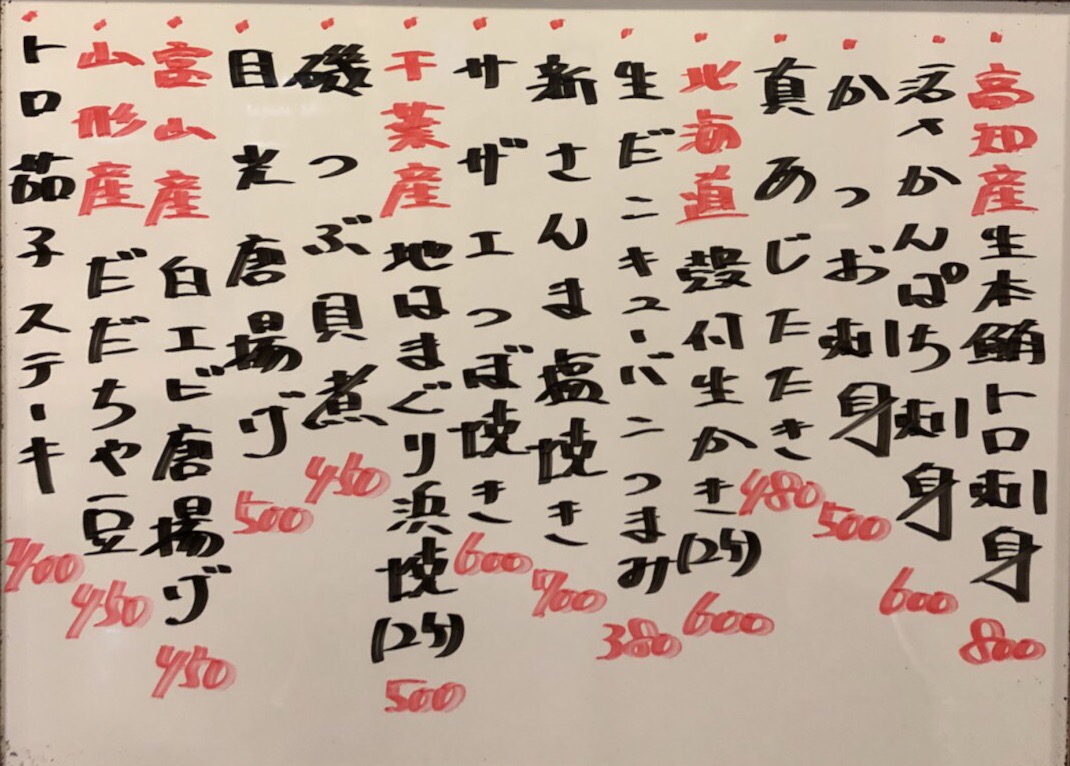 高知産 生本鮪トロ刺身 800
活〆かんぱち刺身 600
かつお刺身 500
真あじたたき 480
北海道 殻付生かき(2ケ) 600
生だこキューバンつまみ 380
新さんま塩焼き 700
サザエつぼ焼き 600
千葉産 地はまぐり浜焼(2ケ) 500
磯つぶ貝煮 450
目光唐揚げ 500
富山産 白エビ唐揚げ 450
山形産 だだちゃ豆 450
トロ茄子ステーキ 400